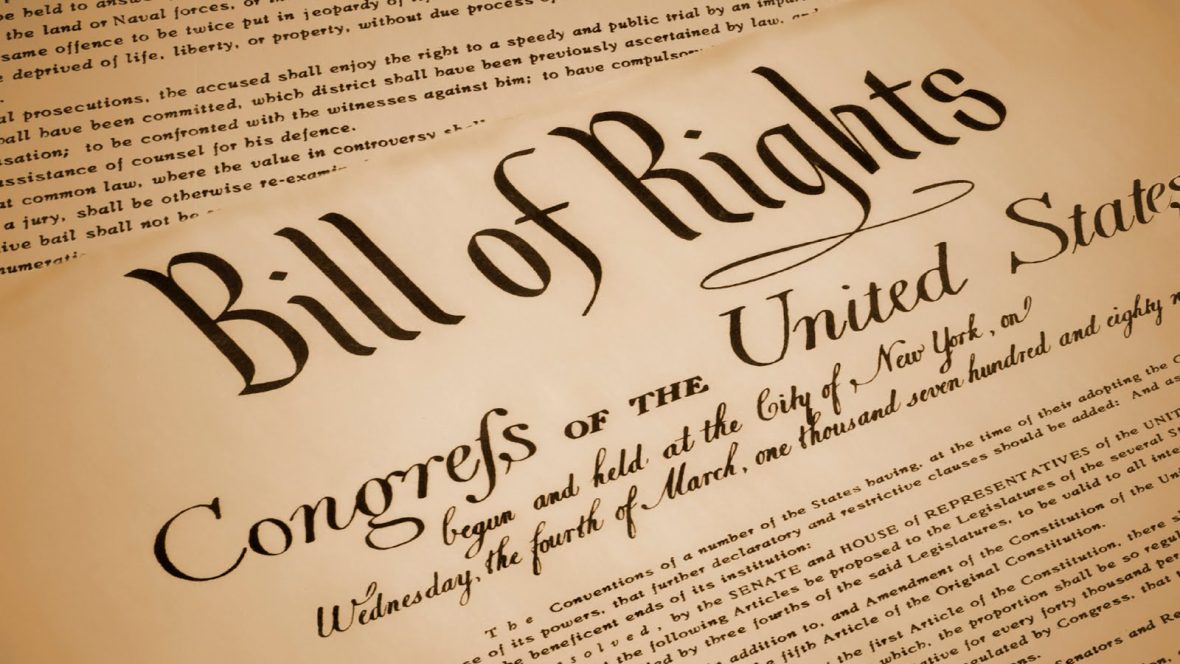 be held to answ
the land or Naval forces, or
same offence to be twice put in jeopardy of
deprived of life, liberty, or property, without due process of
prosecutions, the accused shall enjoy the right to a speedy and public trial by an
shall have been committed, which district shall have been previously ascertained by law,
to be confronted with the witnesses against him; to have
assistance of counsel for his defence.
at common law, where the value in controversy
a jury, shall be otherwise
bail shall not be
Bill of Rights
Congreſs OF THE United States
begun and held at the City of New York, on
Wednesday, the fourth of March, one thousand seven hundred and eighty
The Conventions of a number of the States having, at the time of their adopting the
of its powers, that further declaratory and restrictive clauses should be added: And as
beneficent ends of its institution:
by the SENATE and HOUSE of REPRESENTATIVES of the
the following Articles be proposed to the Legislatures of the several
by three fourths of the said Legislatures, to be valid to all
addition to, and Amendment of the Constitution of the
fifth Article of the Original Constitution.
the first Article of the Constitution, there
which, the proportion shall be so
for every forty thousand
by Congress, that
Senators and